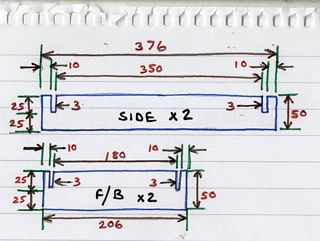 376
10 350 10
25 3 SIDE x2 3 50
25
10 180 10
25 3 3 50
25 F/B x2
206